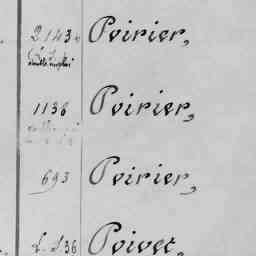 2143 Poirier,
1136 Poirier,
693 Poirier,
536 Poivet,